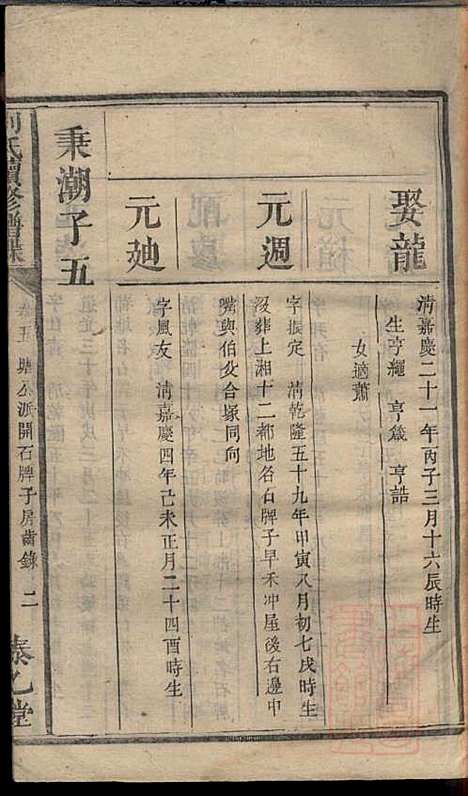 娶龍
清嘉慶二十一年丙子三月十六辰時生
生亨繩 亨箴 亨誥
女適蕭
元週
字振定 清乾隆五十九年甲寅八月初七戌時生
歿葬上湘十二都地名石牌子早禾冲屋後右邊中
嘴與伯父合塚同向
元廸
字風友 清嘉慶四年己未正月二十四酉時生
秉潮子五
氏續修譜
卷五 塘公派開石牌子房齒錄 二
泰乙堂